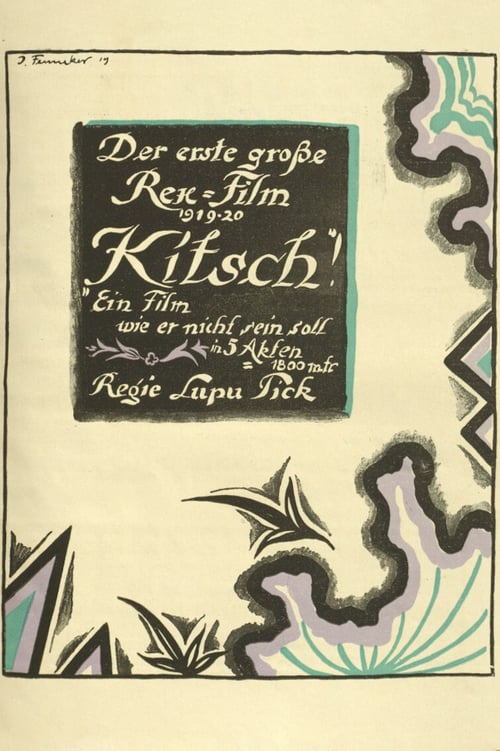 J. Fenneker 19
Der erste große
Rex=Film
1919·20
Kitsch"!
"Ein Film
wie er nicht sein soll
in 5 Akten
= 1800 mtr
Regie Lupu Pick